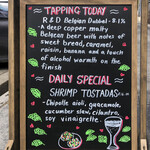 TAPPING TODAY
R & D Belgian Dubbel - 8.1%
- A deep copper malty
Belgian beer with notes of
sweet bread, caramel,
raisin, banana and a touch
of alcohol warmth on the
finish
DAILY SPECIAL
SHRIMP TOSTADAS
- Chipotle aioli, guacamole,
cucumber slaw, cilantro,
soy vinaigrette.